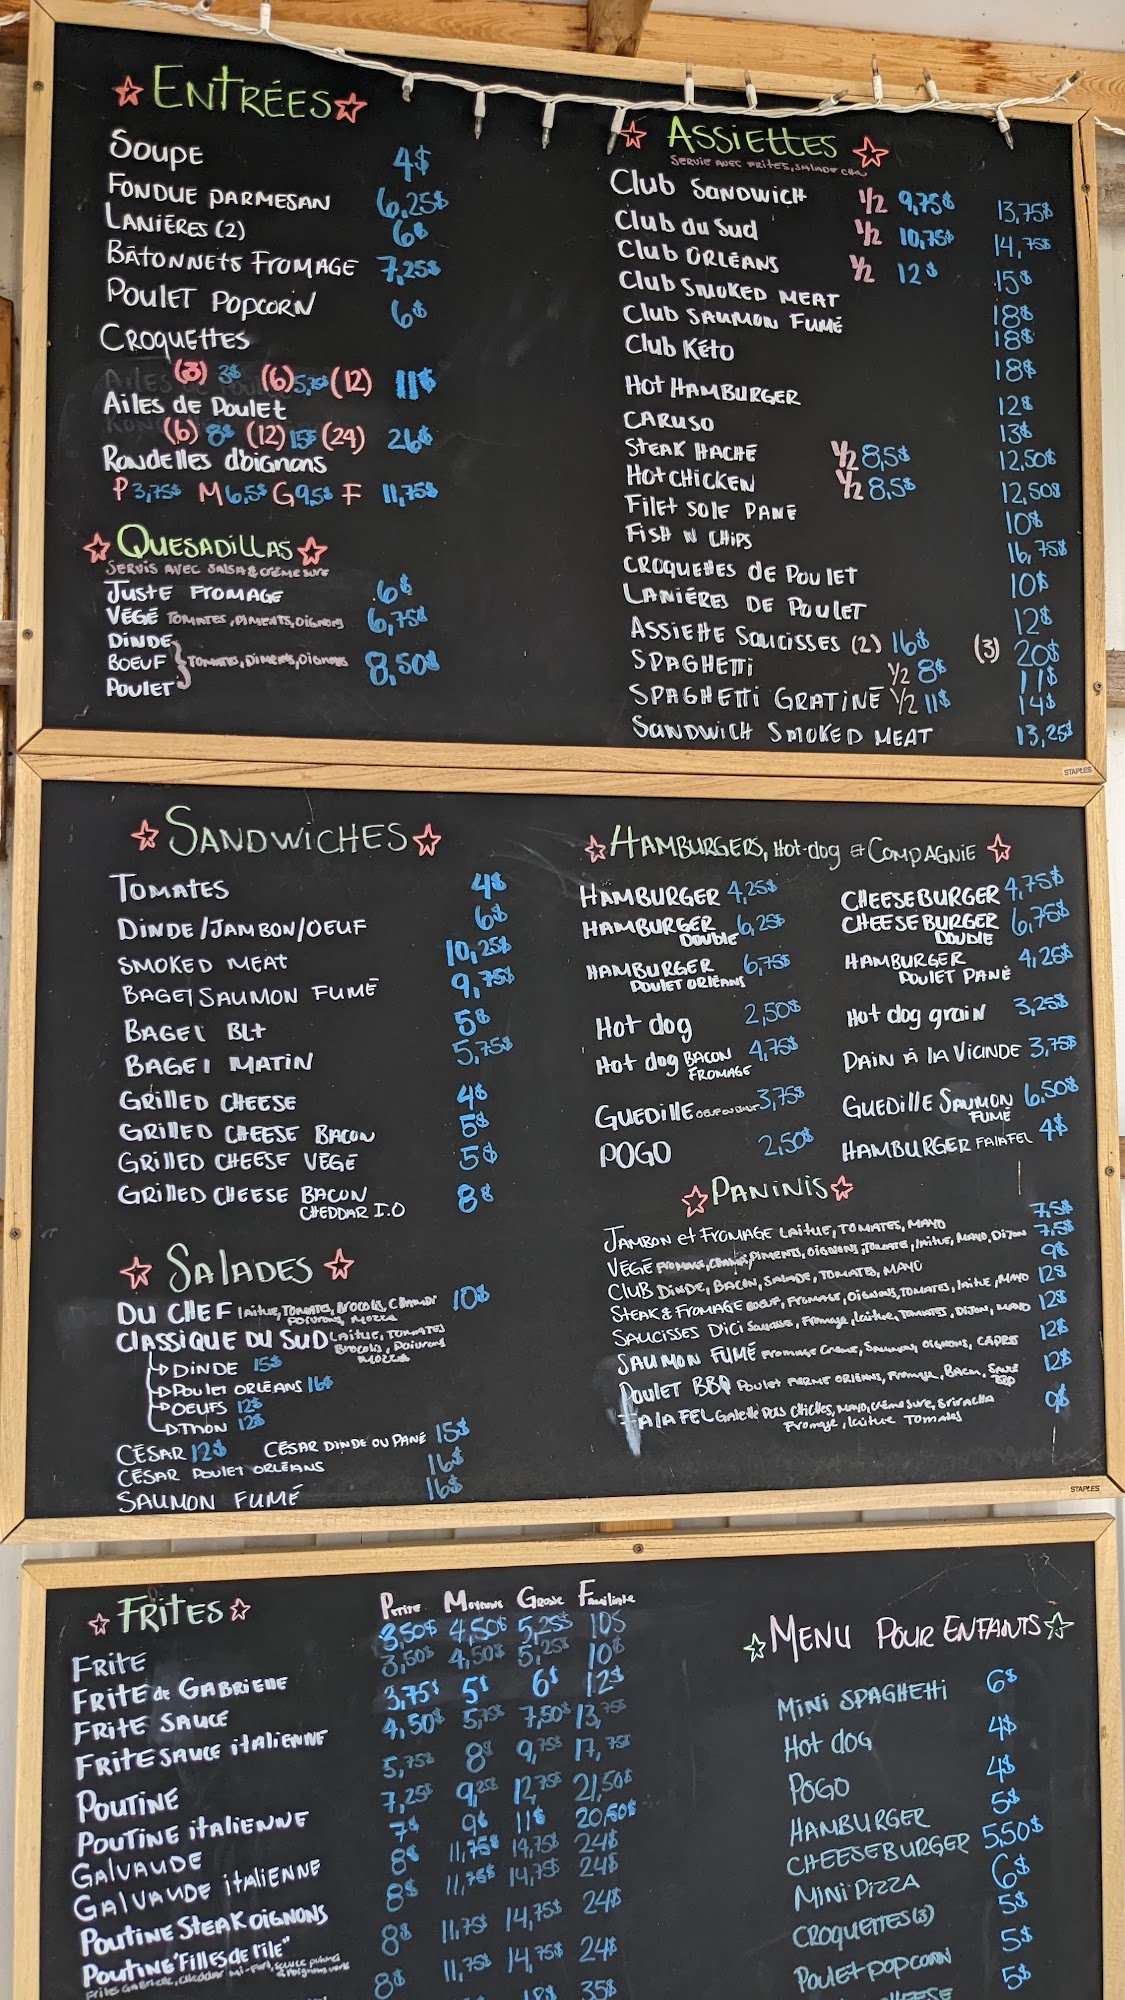 ENTRÉES
SOUPE 4$
FONDUE PARMESAN 6,25$
LANIÈRES (2) 6$
BÂTONNETS FROMAGE 7,25$
POULET POPCORN 6$
CROQUETTES
(3) 3$ (6) 5,75$ (12) 11$
AILES DE POULET
(6) 8$ (12) 15$ (24) 26$
RONDELLES D'OIGNONS
P 3,75$ M 6,5$ G 9,5$ F 11,75$
QUESADILLAS
SERVIS AVEC SALSA & CRÈME SURE
JUSTE FROMAGE 6$
VÉGÉ TOMATES, PIMENTS, OIGNONS 6,75$
DINDE
BOEUF TOMATES, PIMENTS, OIGNONS 8,50$
POULET
ASSIETTES
SERVIE AVEC FRITES, SALADE CHOU
CLUB SANDWICH 1/2 9,75$ 13,75$
CLUB DU SUD 1/2 10,75$ 14,75$
CLUB ORLÉANS 1/2 12$ 15$
CLUB SMOKED MEAT 18$
CLUB SAUMON FUMÉ 18$
CLUB KÉTO 18$
HOT HAMBURGER 12$
CARUSO 13$
STEAK HACHÉ 1/2 8,5$ 12,50$
HOT CHICKEN 1/2 8,5$ 12,50$
FILET SOLE PANÉ 10$
FISH N CHIPS 16,75$
CROQUETTES DE POULET 10$
LANIÈRES DE POULET 12$
ASSIETTE SAUCISSES (2) 16$ (3) 20$
SPAGHETTI 1/2 8$ 11$
SPAGHETTI GRATINÉ 1/2 11$ 14$
SANDWICH SMOKED MEAT 13,25$
STAPLES
SANDWICHES
TOMATES 4$
DINDE/JAMBON/OEUF 6$
SMOKED MEAT 10,25$
BAGEL SAUMON FUMÉ 9,75$
BAGEL BLT 5$
BAGEL MATIN 5,75$
GRILLED CHEESE 4$
GRILLED CHEESE BACON 5$
GRILLED CHEESE VÉGÉ 5$
GRILLED CHEESE BACON 8$
CHEDDAR I.O
SALADES
DU CHEF LAITUE, TOMATES, BROCOLIS, 10$
POIVRONS, MOZZA
CLASSIQUE DU SUD LAITUE, TOMATES
BROCOLIS, POIVRONS
MOZZA
DINDE 15$
POULET ORLÉANS 16$
OEUFS 12$
THON 12$
CÉSAR 12$ CÉSAR DINDE OU PANÉ 15$
CÉSAR POULET ORLÉANS 16$
SAUMON FUMÉ 16$
HAMBURGERS, HOT-DOG ET COMPAGNIE
HAMBURGER 4,25$ CHEESEBURGER 4,75$
HAMBURGER 6,25$ CHEESE BURGER 6,75$
DOUBLE DOUBLE
HAMBURGER 6,75$ HAMBURGER 4,25$
POULET ORLÉANS POULET PANÉ
HOT DOG 2,50$ HOT DOG GRAIN 3,25$
HOT DOG BACON 4,75$ PAIN À LA VIANDE 3,75$
FROMAGE
GUEDILLE 3,75$ GUEDILLE SAUMON 6,50$
FUMÉ
POGO 2,50$ HAMBURGER FALAFEL 4$
PANINIS
JAMBON ET FROMAGE LAITUE, TOMATES, MAYO 7,5$
VÉGÉ FROMAGE, PIMENTS, OIGNONS, TOMATE, LAITUE, MAYO, DIJON 7,5$
CLUB DINDE, BACON, SALADE, TOMATES, MAYO 9$
STEAK & FROMAGE BOEUF, FROMAGE, OIGNONS, TOMATES, LAITUE, MAYO 12$
SAUCISSES D'ICI SAUCISSE, FROMAGE, LAITUE, TOMATES, DIJON, MAYO 12$
SAUMON FUMÉ FROMAGE CRÈME, SAUMON, OIGNONS, CÂPRES 12$
POULET BBQ POULET FERME ORLÉANS, FROMAGE, BACON, SAUCE BBQ 12$
FALAFEL GALETTE POIS CHICHES, MAYO, CRÈME SURE, SRIRACHA 9$
FROMAGE, LAITUE TOMATES
STAPLES
FRITES
PETITE MOYENNE GROSSE FAMILIALE
FRITE 3,50$ 4,50$ 5,25$ 10$
FRITE DE GABRIELLE 3,50$ 4,50$ 5,25$ 10$
FRITE SAUCE 3,75$ 5$ 6$ 12$
FRITE SAUCE ITALIENNE 4,50$ 5,75$ 7,50$ 13,75$
POUTINE 5,75$ 8$ 9,75$ 17,75$
POUTINE ITALIENNE 7,25$ 9,25$ 12,75$ 21,50$
GALVAUDE 7$ 9$ 11$ 20,50$
GALVAUDE ITALIENNE 8$ 11,75$ 14,75$ 24$
POUTINE STEAK OIGNONS 8$ 11,75$ 14,75$ 24$
POUTINE "FILLES DE L'ILE" 8$ 11,75$ 14,75$ 24$
8$ 11,75$ 14,75$ 24$
18$ 35$
MENU POUR ENFANTS
MINI SPAGHETTI 6$
HOT DOG 4$
POGO 4$
HAMBURGER 5$
CHEESEBURGER 5,50$
MINI PIZZA 6$
CROQUETTES (3) 5$
POULET POPCORN 5$
CHEESE 5$